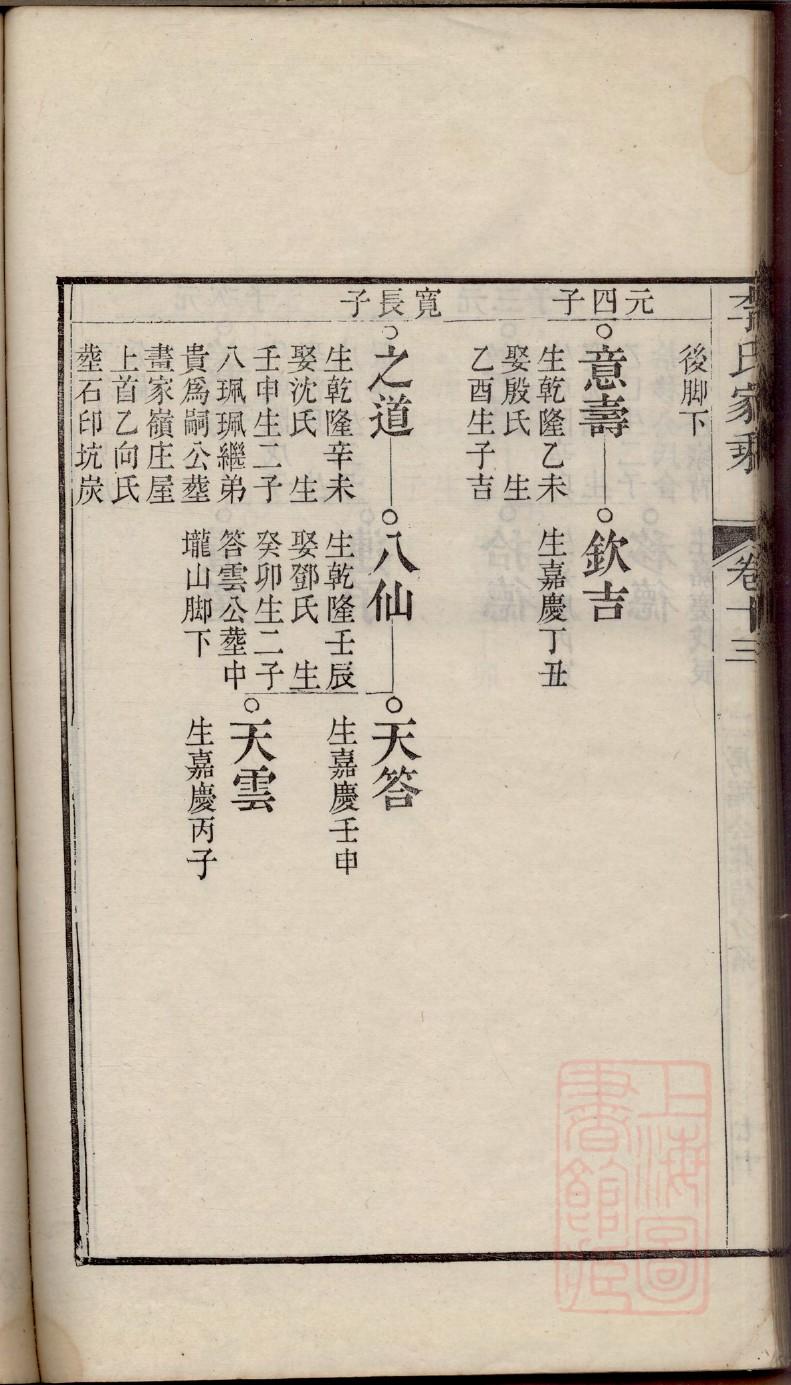 李氏家乘 卷十三
後脚下
元四子
意壽
生乾隆乙未
娶殷氏 生
乙酉生子吉
欽吉
生嘉慶丁丑
寬長子
之道
生乾隆辛未
娶沈氏 生
壬申生二子
八珮珮繼弟
貴爲嗣公塟
畫家嶺庄屋
上首乙向氏
塟石印坑炭
八仙
生乾隆壬辰
娶鄧氏 生
癸卯生二子
答雲公塟中
壠山脚下
天答
生嘉慶壬申
天雲
生嘉慶丙子
上海圖書館藏